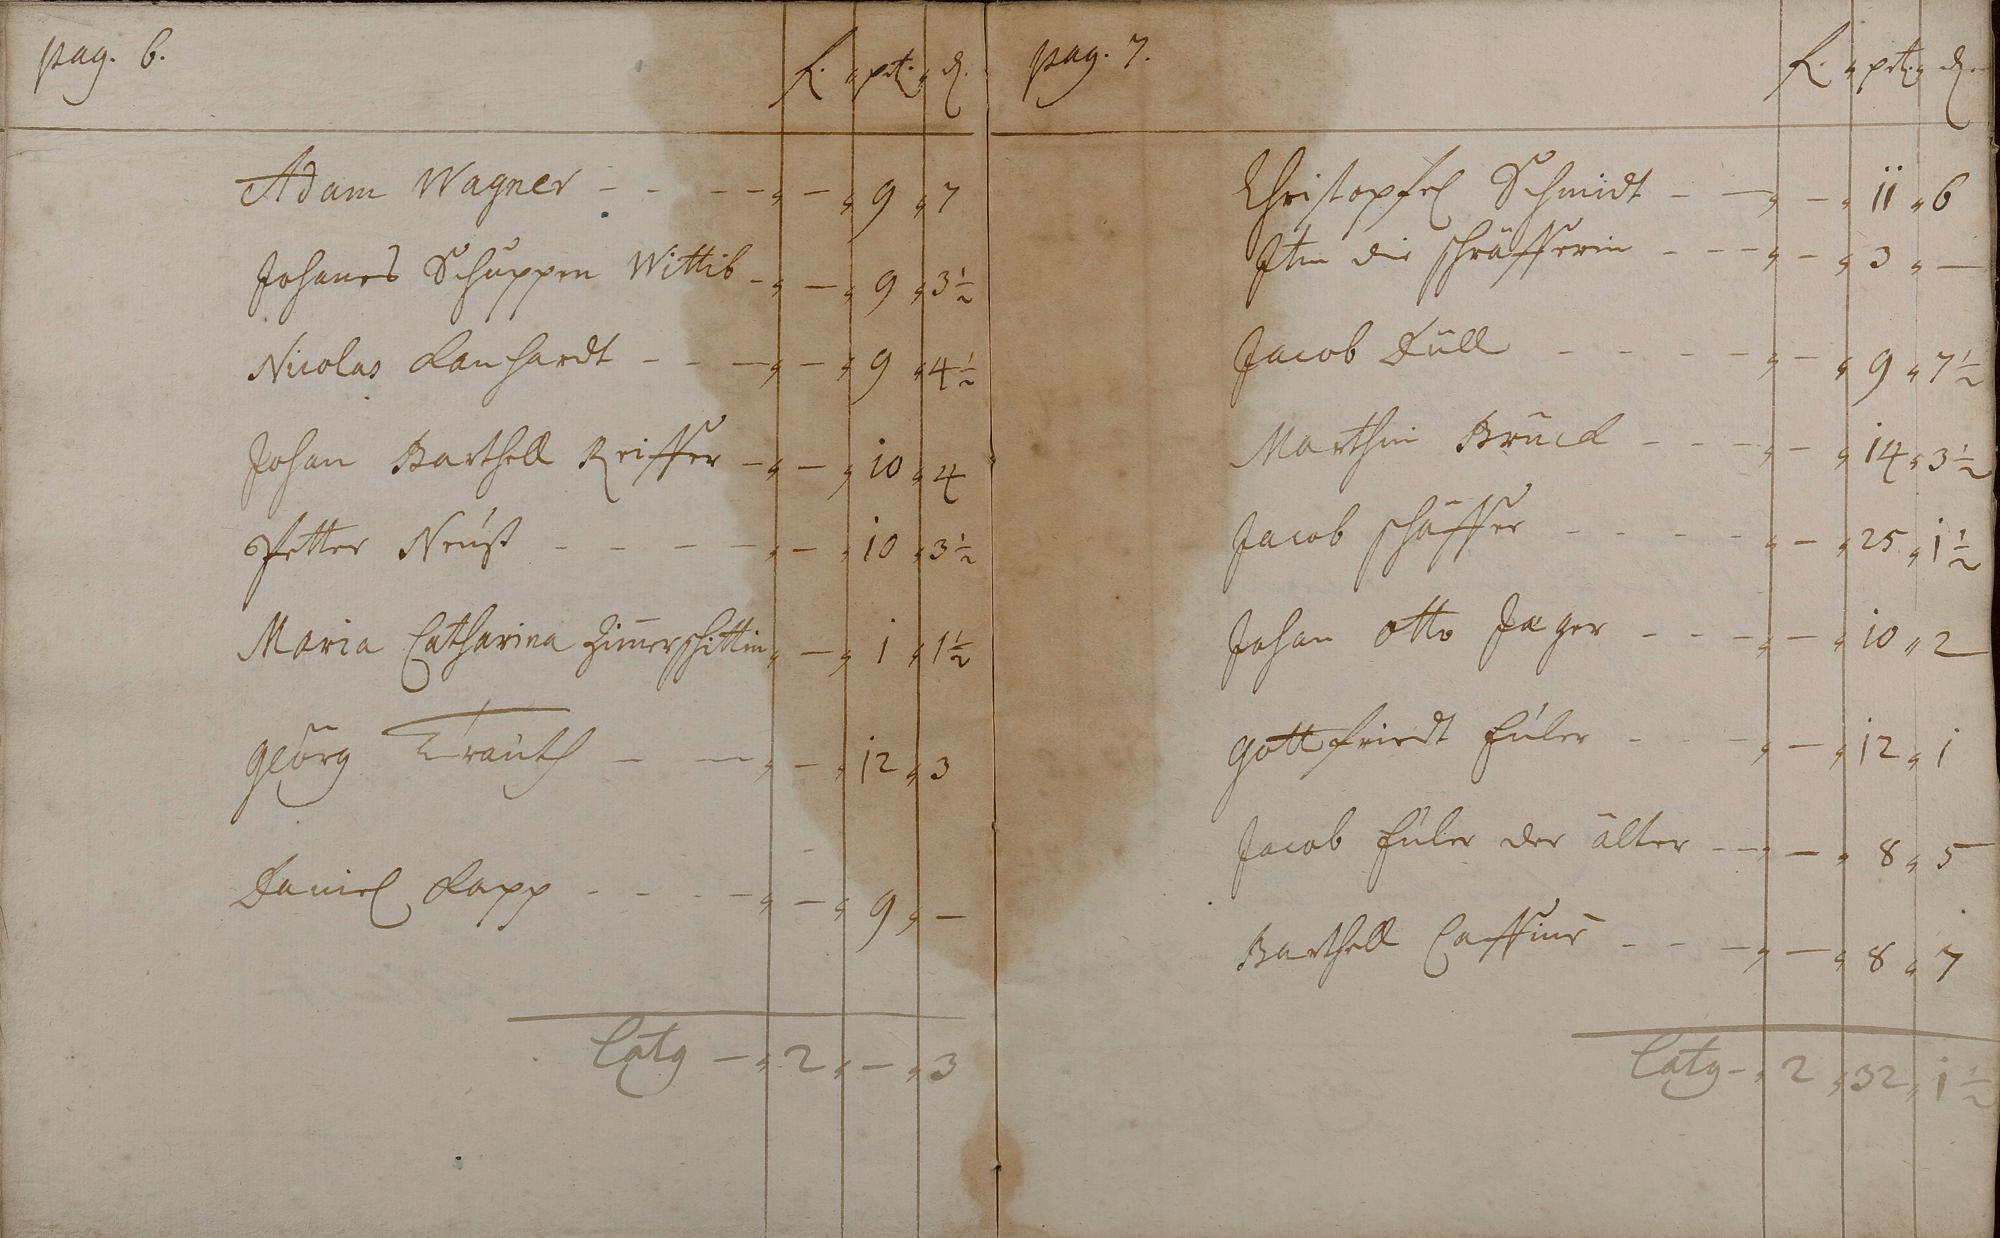 pag. 6.
f. " pet. " d.
Adam Wagner - - - - " - " 9 " 7
Johanes Schuppen Wittib - " - " 9 " 3½
Nicolas Lanhardt - - - " - " 9 " 4½
Johan Barthell Reiffer - " - " 10 " 4
Petter Neuß - - - - - " - " 10 " 3½
Maria Catharina Zim̄erschittin " - " 1 " 1½
Georg Trauth - - " - " 12 " 3
Daniel Lapp - - - - " - " 9 " -
Latg - " 2 " - " 3
pag. 7.
f. " " d.
Christopfel Schmidt - - " - " 11 " 6
die schräfferin - - - " - " 3 " -
Jacob Düll - - - - " - " 9 " 7½
Marthin Bruch - - - " - " 14 " 3½
Jacob schäffer - - - - " - " 25 " 1½
Johan otto Jaeger - - - " - " 10 " 2
Gottfriedt Euler - - - " - " 12 " 1
Jacob Euler der älter - - " - " 8 " 5
Barthell Cassius - - - " - " 8 " 7
Latg - " 2 " 32 " 1½